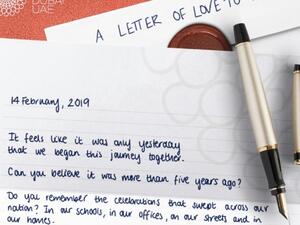 DUBAI
UAE
A LETTER OF LOVE TO
14 February, 2019
It feels like it was only yesterday
that we began this journey together.
Can you believe it was more than five years ago?
Do you remember the celebrations that swept across our
nation? In our schools, in our offices, on our streets and in
our homes.